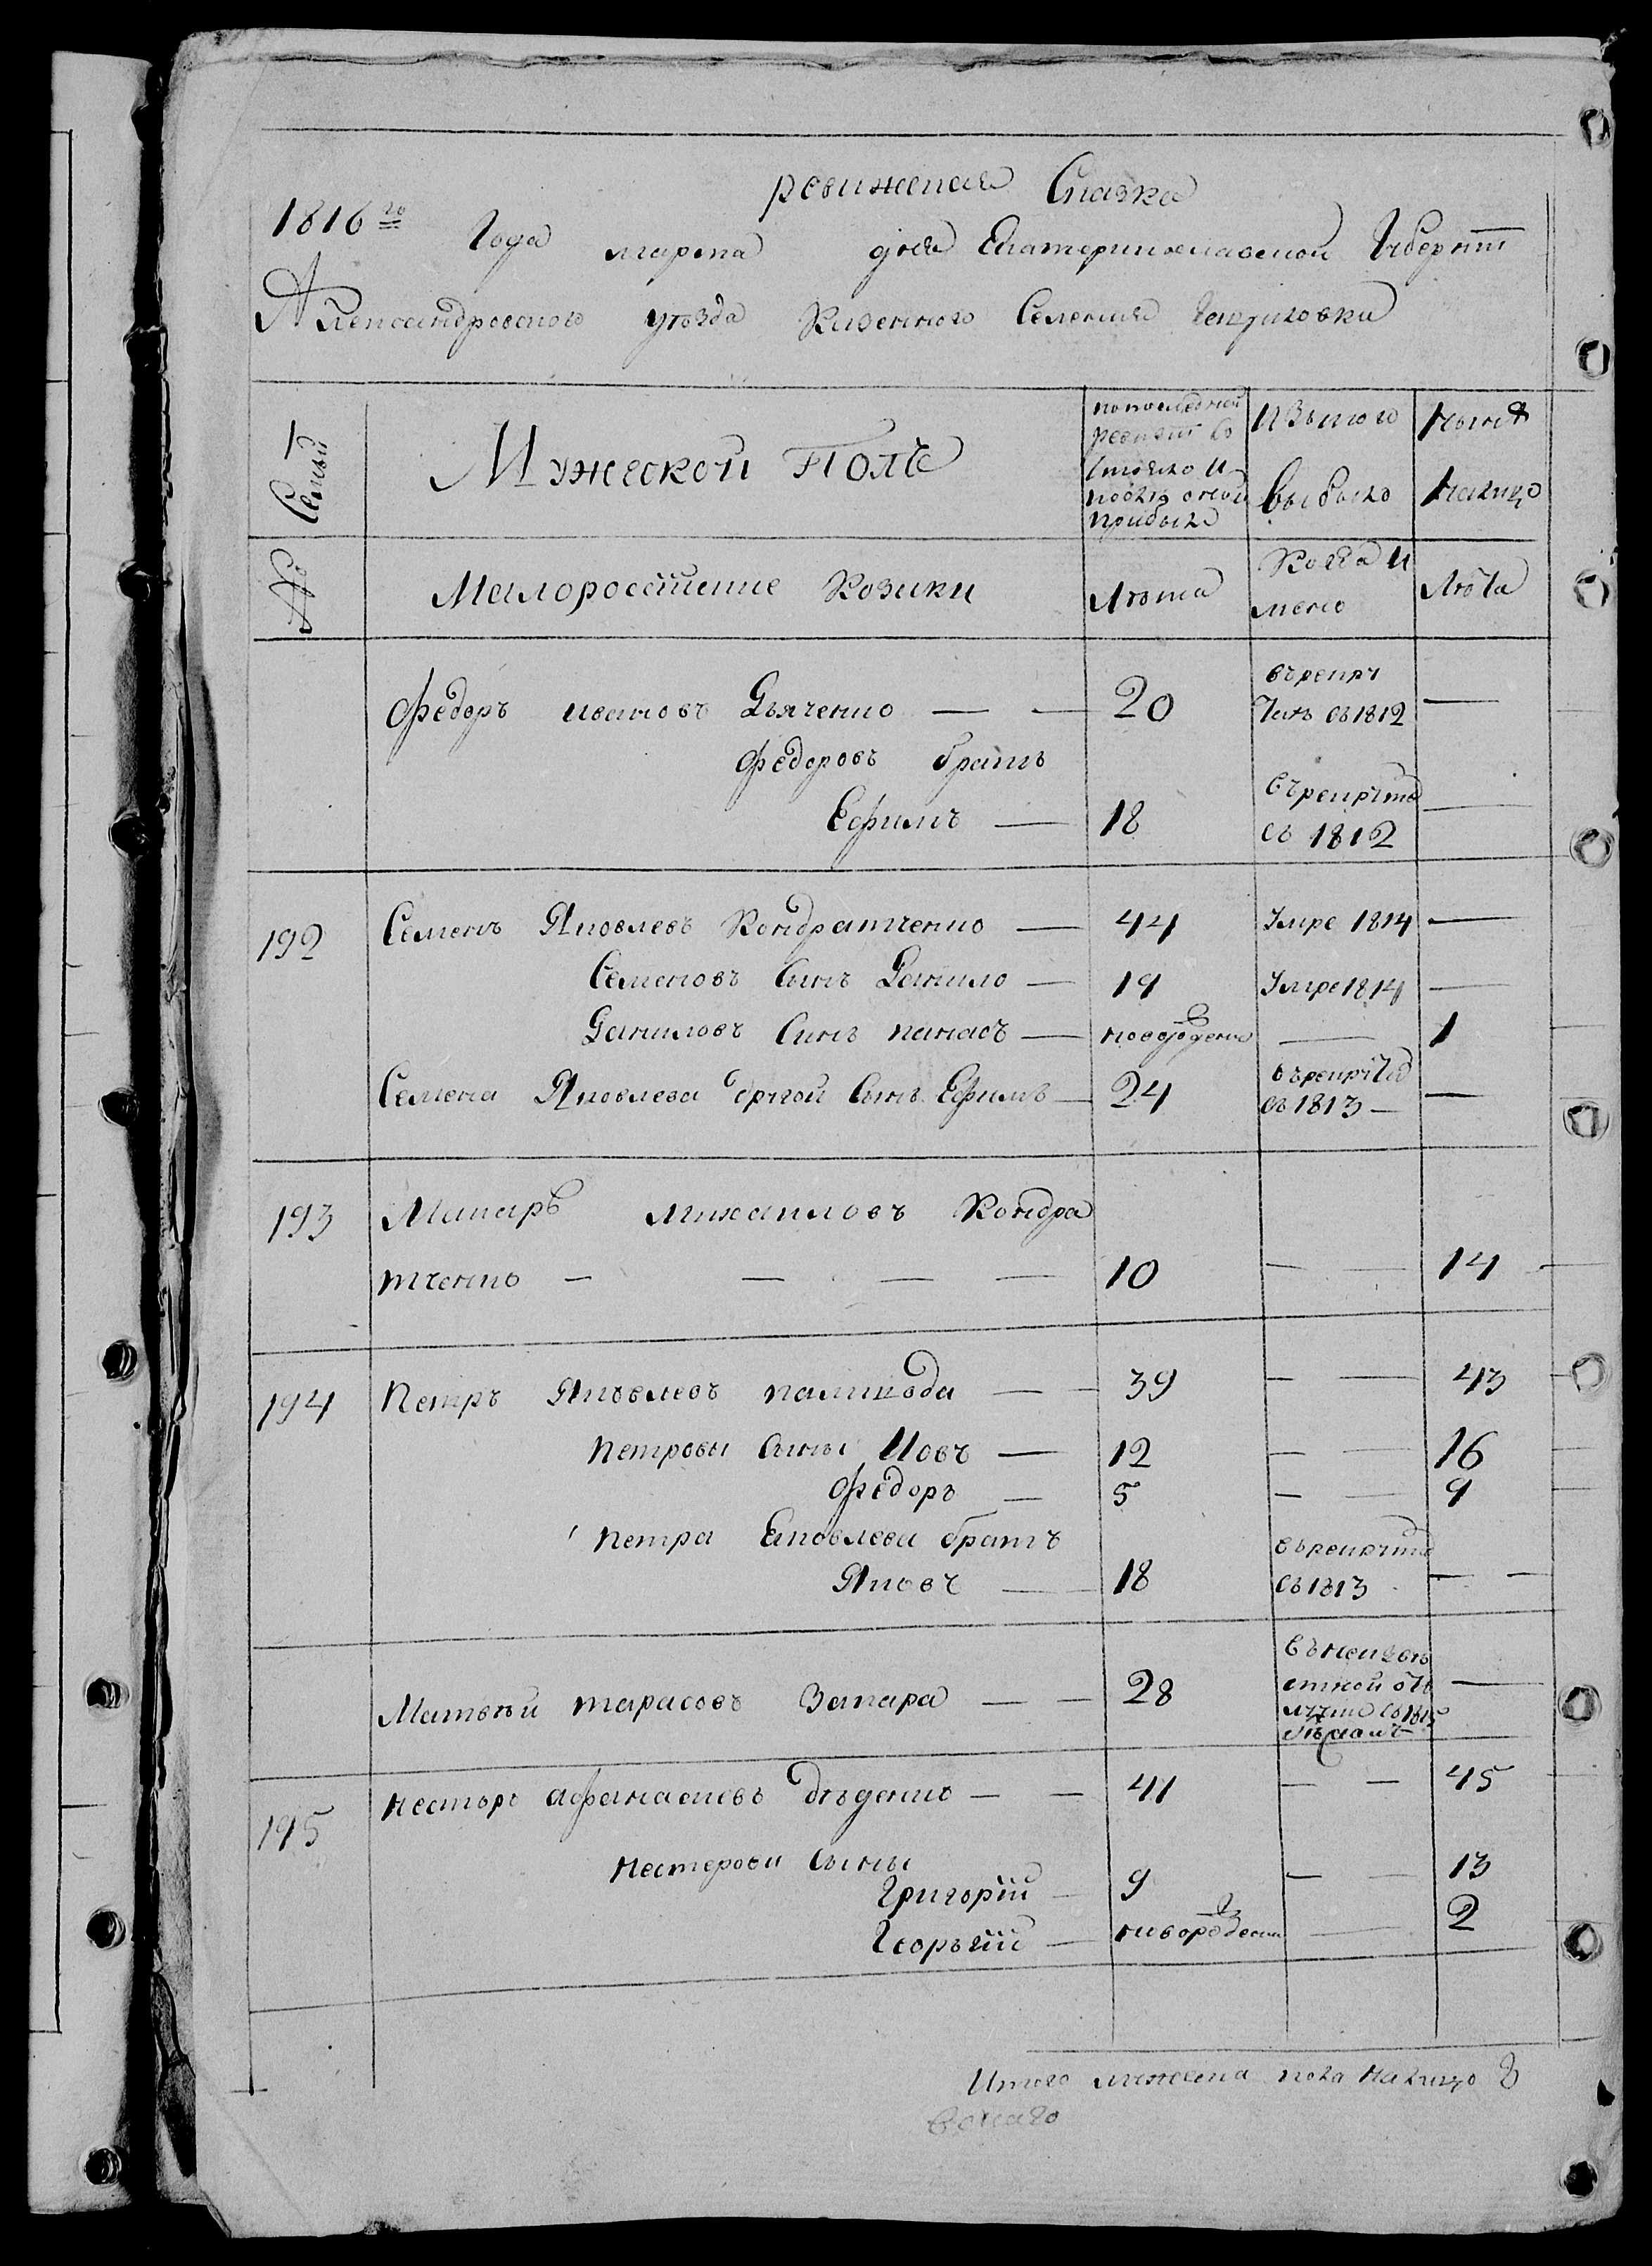 ревижская Сказка
1816го Года марта дня Екатеринославской Губернiи
Александровского уезда Казенного Селения
№ Семьи
Мужеской Полъ
по последней ревизiи состояло и после оной прибыло
Изъ того выбыло
Ныне налицо
Малороссiйские Козаки
Лета
Когда и менно
Лета
Федоръ ивановъ Дьяченко — — 20 въ рекруты въ 1812 —
Федоровъ братъ
Ефимъ — 18 въ рекруты въ 1812 —
192 Семенъ Яковлевъ Кондратченко — 44 Умре 1814 —
Семеновъ Сынъ Данило — 19 Умре 1814 —
Даниловъ Синъ панасъ — новорожденъ — 1
Семена Яковлева другой Сынъ Ефимъ — 24 въ рекруты въ 1813 — —
193 Макаръ михайловъ Кондра
тченко — — — — 10 — — 14
194 Петръ Яковлевъ паликода — — 39 — — 43
Петрови сыны Иовъ — 12 — — 16
Федоръ — 5 — — 9
Петра Яковлева братъ
Яковъ — 18 въ рекруты въ 1813 — —
Матвей тарасовъ Запара — — 28 въ 1815 —
195 Нестеръ афанасиевъ деденко — — 41 — — 45
Нестерови Сыны
Григорiй — 9 — — 13
Георьгiй — новорожденъ — 2
Итого мужеска пола налицо 8